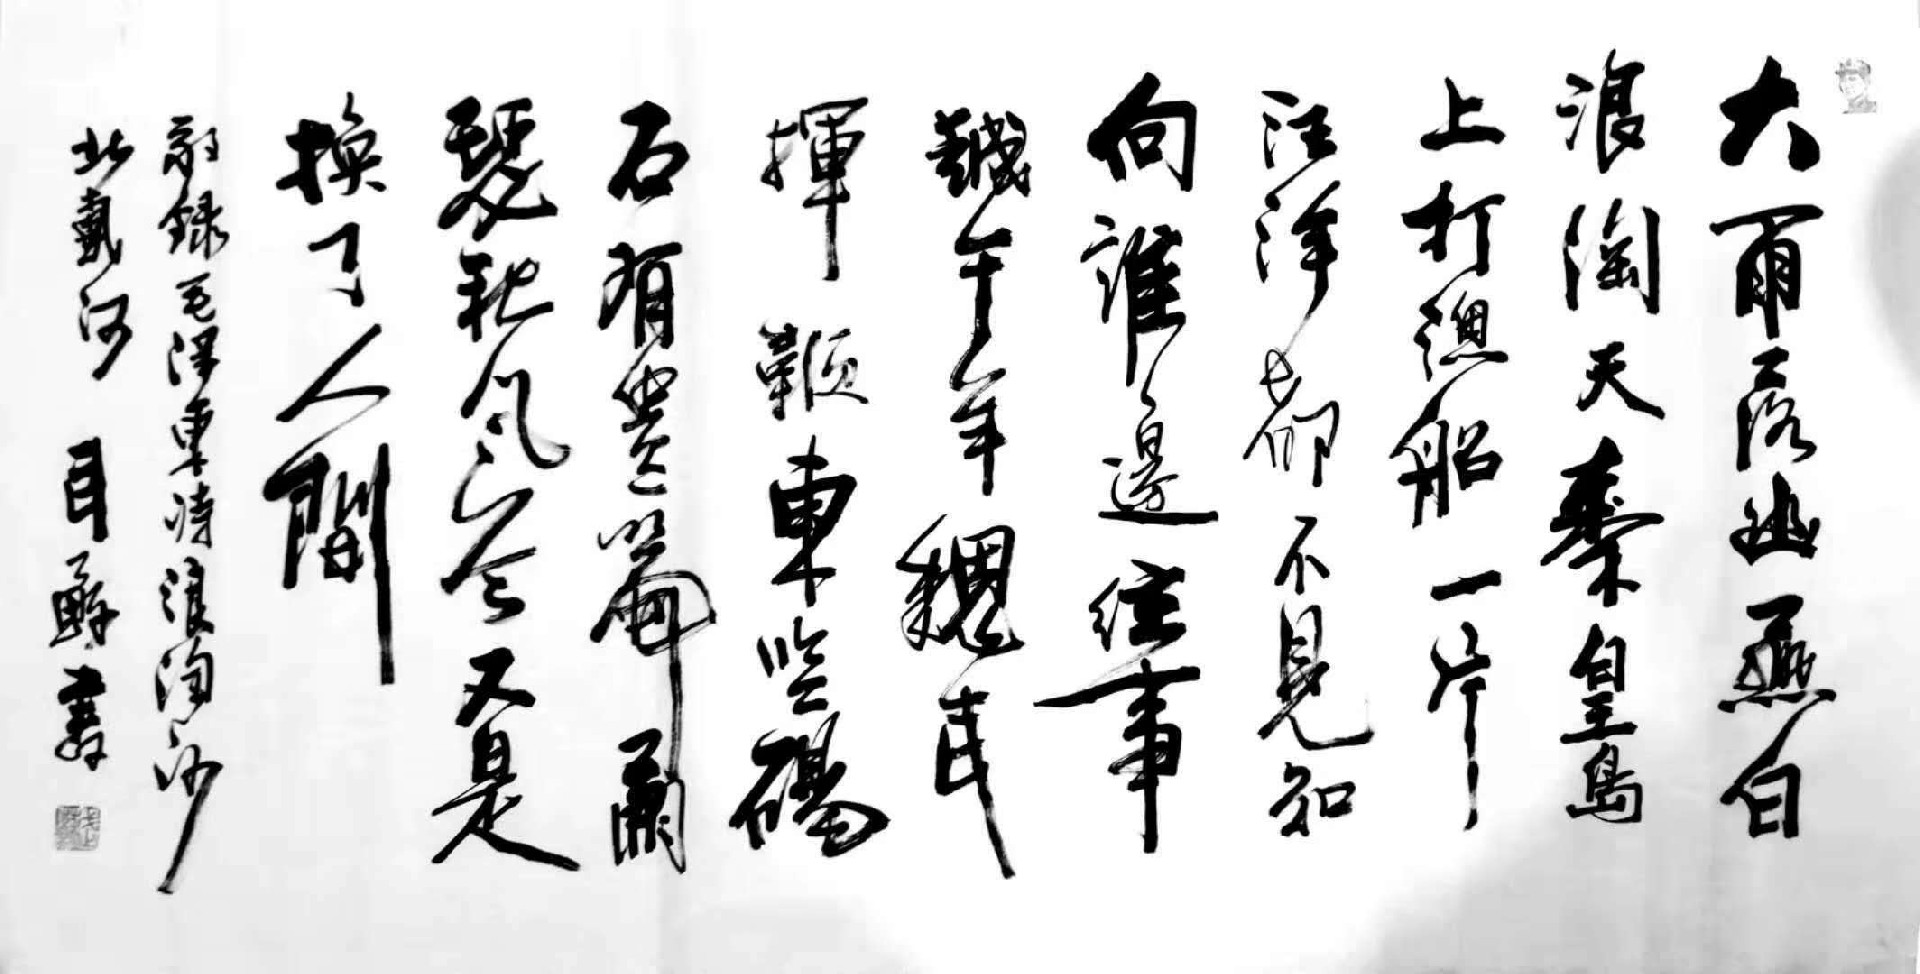 大雨落幽燕白
浪滔天秦皇島
上打漁船一片
汪洋都不見知
向誰邊往事
越千年魏武
揮鞭東臨碣
石有遺篇蕭
瑟秋風今又是
換了人間
敬錄毛澤東詩浪淘沙
北戴河 書